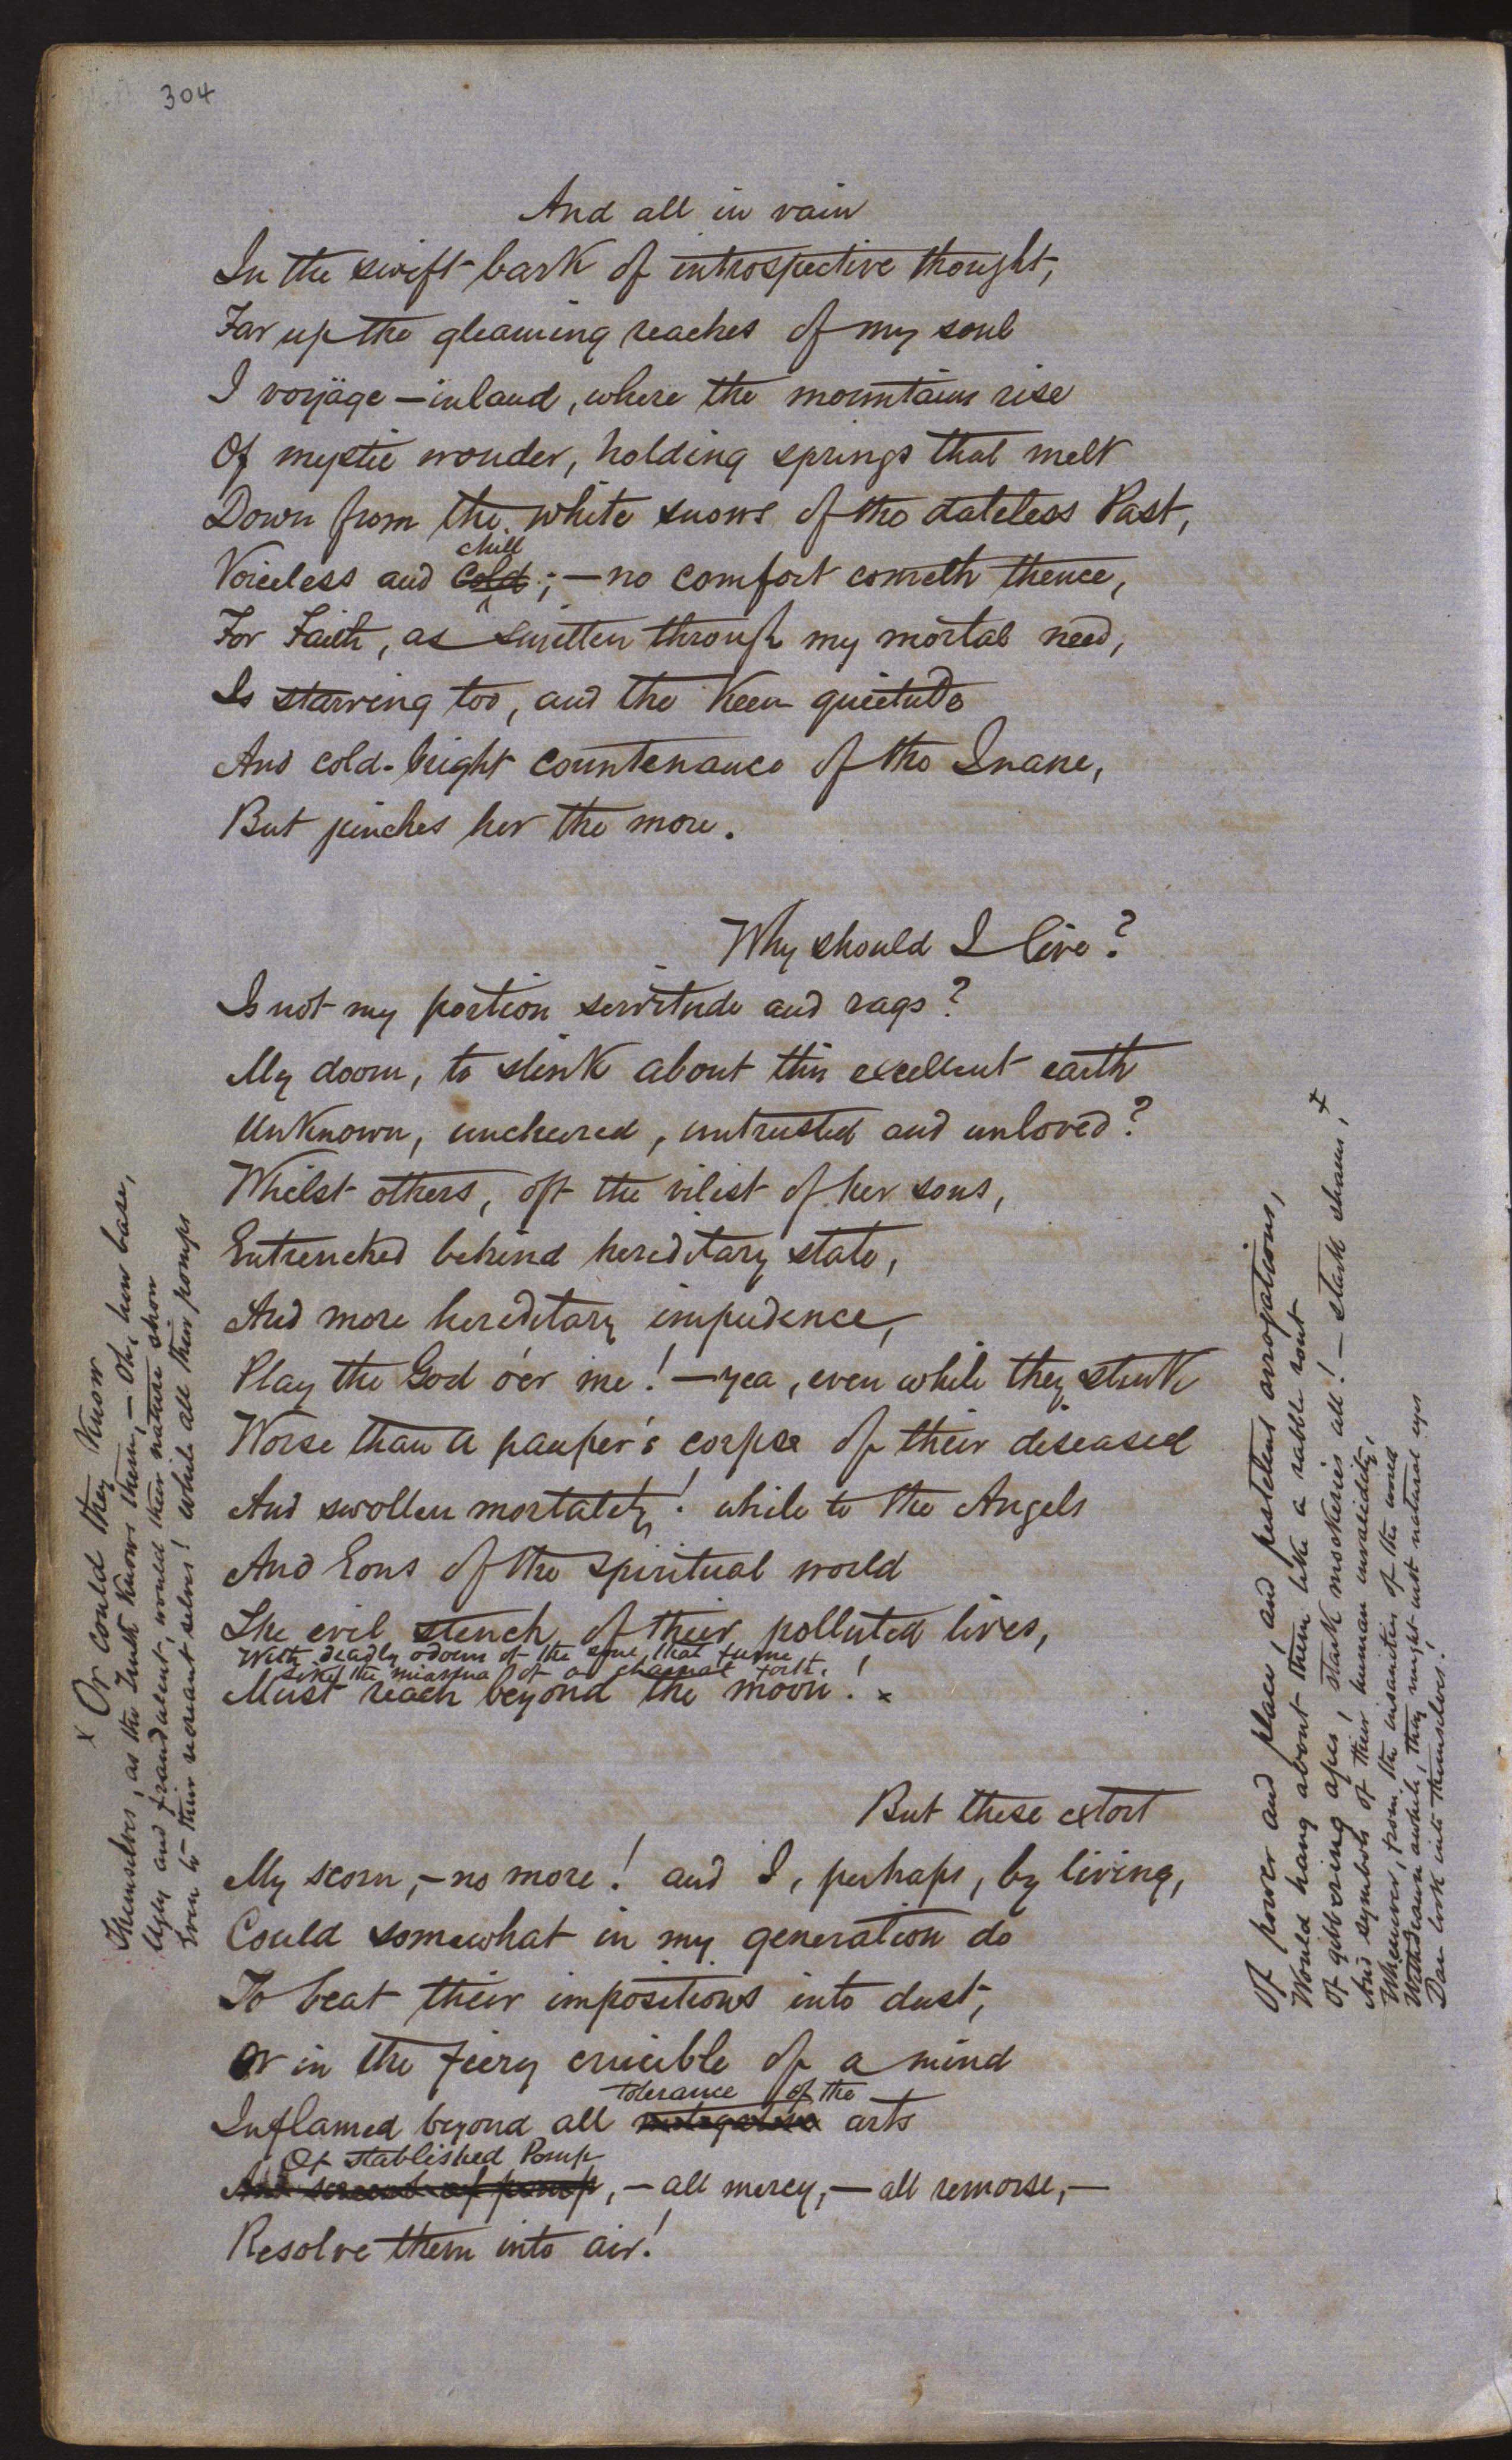 304
And all in vain
In the swift bark of introspective thought,
Far up the gleaming reaches of my soul
I voÿage — inland, where the mountains rise
Of mystic wonder, holding springs that melt
Down from the white snows of the dateless Past,
chill
Voiceless and cold; — no comfort cometh thence,
For Faith, as smitten through my mortal need,
Is starving too, and the keen quietude
And cold-bright countenance of the Inane,
But pinches her the more.
Why should I live?
Is not my portion servitude and rags?
My doom, to slink about this excellent earth
Unknown, uncheered, untrusted and unloved?
Whilst others, oft the vilest of her sons,
Entrenched behind hereditary state,
And more hereditary impudence,
Play the God o'er me! — yea, even while they stink
Worse than a pauper's corpse of their diseased
And swollen mortality! while to the Angels
And Eons of the spiritual world
The evil stench of their polluted lives,
With deadly odours of the that fume
Like the miasma of a charnal forth!
Must reach beyond the moon! x
But these extort
My scorn, — no more! and I, perhaps, by living,
Could somewhat in my generation do
To beat their impositions into dust,
Or in the fiery crucible of a mind
tolerance of the
Inflamed beyond all arts
Of stablished Pomp
And of pomp, — all mercy, — all remorse, —
Resolve them into air!
x Or could they know
Themselves, as the Truth knows them, — Oh, how base,
Ugly and fraudulent, would their nature show
Even to their recreant selves! while all their pomps
Of power and place, and pestelent arrogations,
Would hang about them like a rabble rout
Of gibbering apes, stark mockeries all! — stark shams, +
And symbols of their human invalidity,
Whenever, from the insanities of the world
Withdrawn awhile, they might with natural eyes
Dare look into themselves!